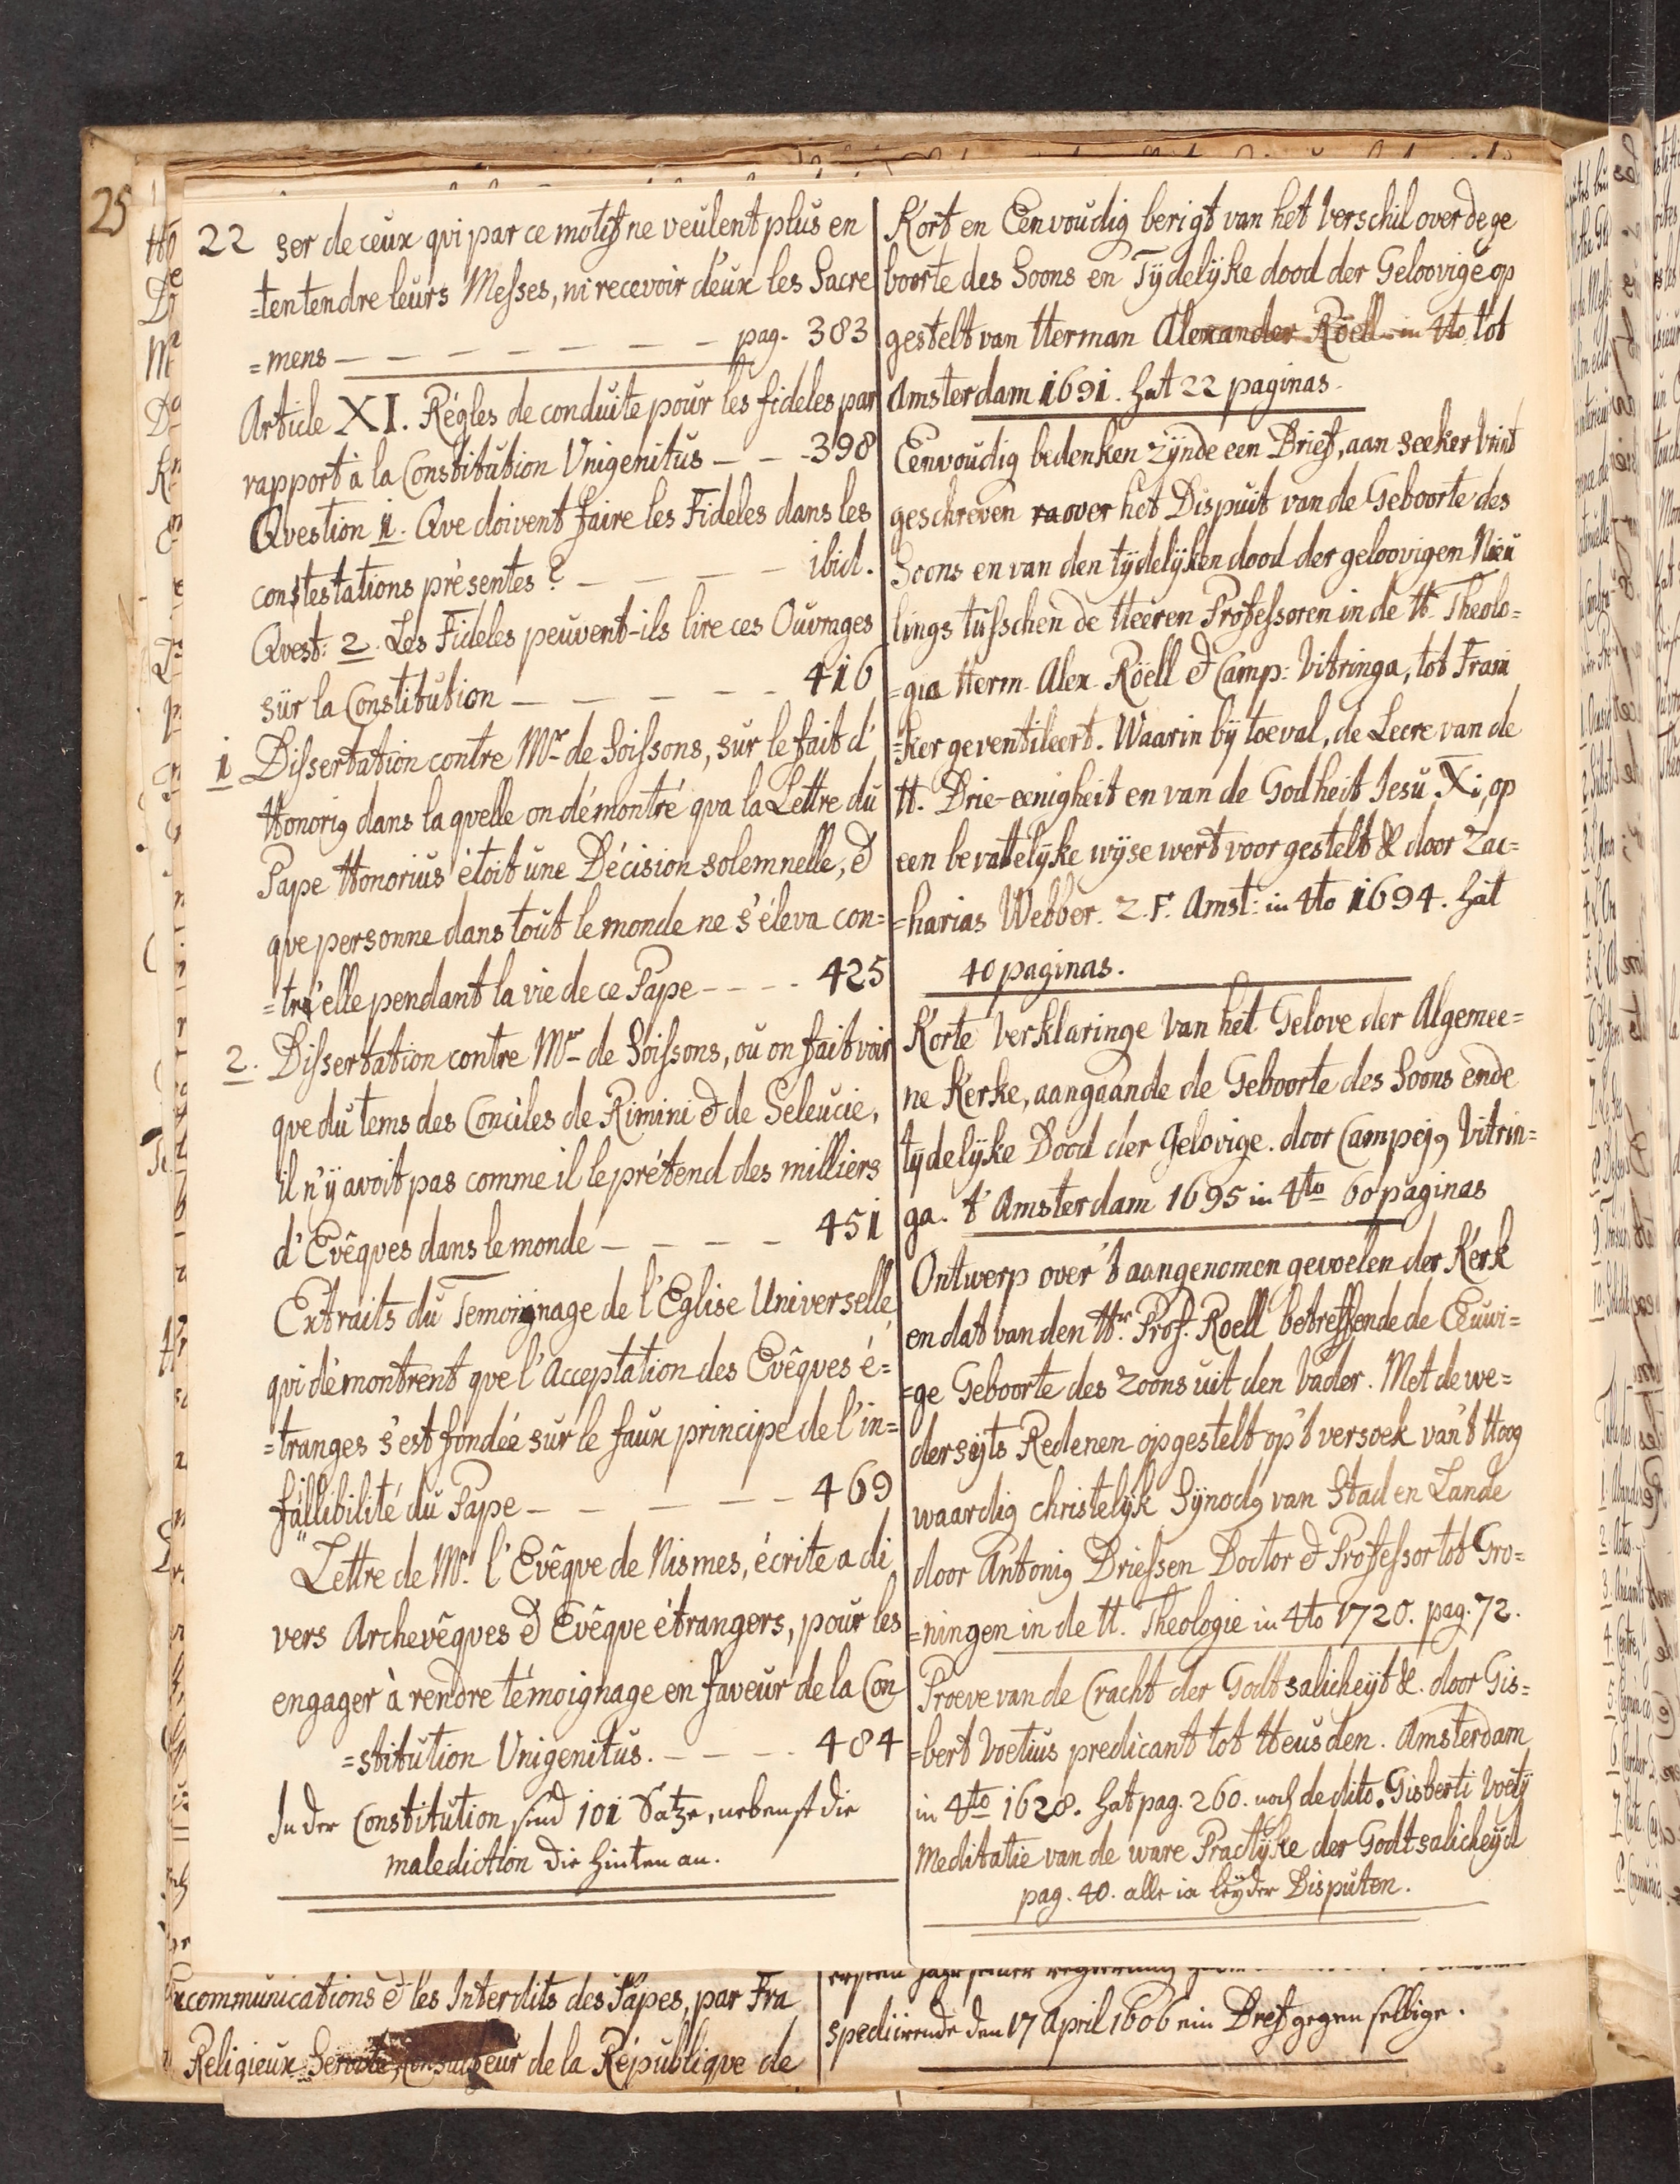 25
22 ser de ceux qui par ce motif ne veulent plus en
=tentendre leurs Messes, ni recevoir d'eux les Sacre
=mens — — — — — — — pag. 383
Article XI. Régles de conduite pour les fideles par
rapport à la Constitution Unigenitus — — -398
Qvestion 1. Qve doivent faire les Fideles dans les
constestations présentes? — — — — ibid.
Qvest: 2. Les Fideles peuvent-ils lire ces Ouvrages
sür la Constitution — — — — — 416
1 Dissertation contre Mr de Soissons, sur le fait d'
Honorig dans laqvelle on démontré qva la Lettre du
Pape Honorius étoit une Décision solemnelle, &
qve personne dans tout le monde ne s'éleva con=
=tre'elle pendant la vie de ce Pape - - - - 425
2. Dissertation contre Mr de Soissons, ou on fait voir
qve du tems des Conciles de Rimini & de Seleucie,
il n'ÿ avoit pas comme il le prétend des milliers
d'Evêqves dans le monde — — — — 451
Extraits du Temoignage de l'Eglise Universelle
qui démontrent qve l'Acceptation des Evêqves é=
=tranges s'est fondée sur le faux principe de l'in=
fallibilité du Pape — — — — — 469
Lettre de Mr. l'Evêqve de Nismes, écrite a di
vers Archevêqves & Evêqve étrangers, pour les
engager à rendre témoignage en faveur de la Con
=stitution Unigenitus. — — — - 484
In der Constitution sind 101 Satze, nebenst die
malediction die hinten an.
Kort en Eenvoudig berigt van het Verschil over de ge
boorte des Soons en Tydelyke dood der Geloovige op
gestelt van Herman Alexander Röell in 4to tot
Amsterdam 1691. hat 22 paginas.
Eenvoudig bedenken zÿnde een Brief, aan seeker vrint
geschreven ra over het Dispuit van de Geboorte des
Soons en van den tÿdelÿken dood der geloovigen Nieu
lings tusschen de Heeren Professoren in de H. Theolo=
=gia Herm. Alex. Röell & Camp: Vitringa, tot Frani
=ker geventileert. Waarin bÿ toeval, de Leere van de
H. Drie-eenigheit en van de Godheit Jesu Xi, op
een bevatelÿke wÿse wert voor gestelt & door Zac=
=harias Webber. Z. F. Amst: in 4to 1694. hat
40 paginas.
Korte Verklaringe van het Gelove der Algemee=
ne Kerke, aangaande de Geboorte des Soons ende
tÿdelÿke Dood der Gelovige. door Campejg Vitrin=
ga. t' Amsterdam 1695 in 4to 60 paginas
Ontwerp over 't aangenomen gevoelen der Kerk
en dat van den Hr. Prof. Roell betreffende de Eeuwi=
=ge Geboorte des Zoons uit den Vader. Met de we=
dersÿts Redenen opgestelt op 't versoek van 't Hoog
waardig christelÿk Sÿnodg van Stad en Lande
door Antonig Driessen Doctor & Professor tot Gro=
=ningen in de H. Theologie in 4to 1720. pag. 72.
Proeve van de Cracht der Godtsalicheÿt &. door Gis=
=bert Voetius predicant tot Heusden. Amsterdam
in 4to 1628. hat pag. 260. noch de dito. Gisberti Voetÿ
Meditatie van de ware Practÿke der Godtsalicheÿd
pag. 40. alle in leÿder Disputen.
xcommunications & les Interdits des Papes, par Fra
Religieux Servite, Consulteur de la Républiqve de
spediirende den 17 April 1606 ein Bref gegen selbige.